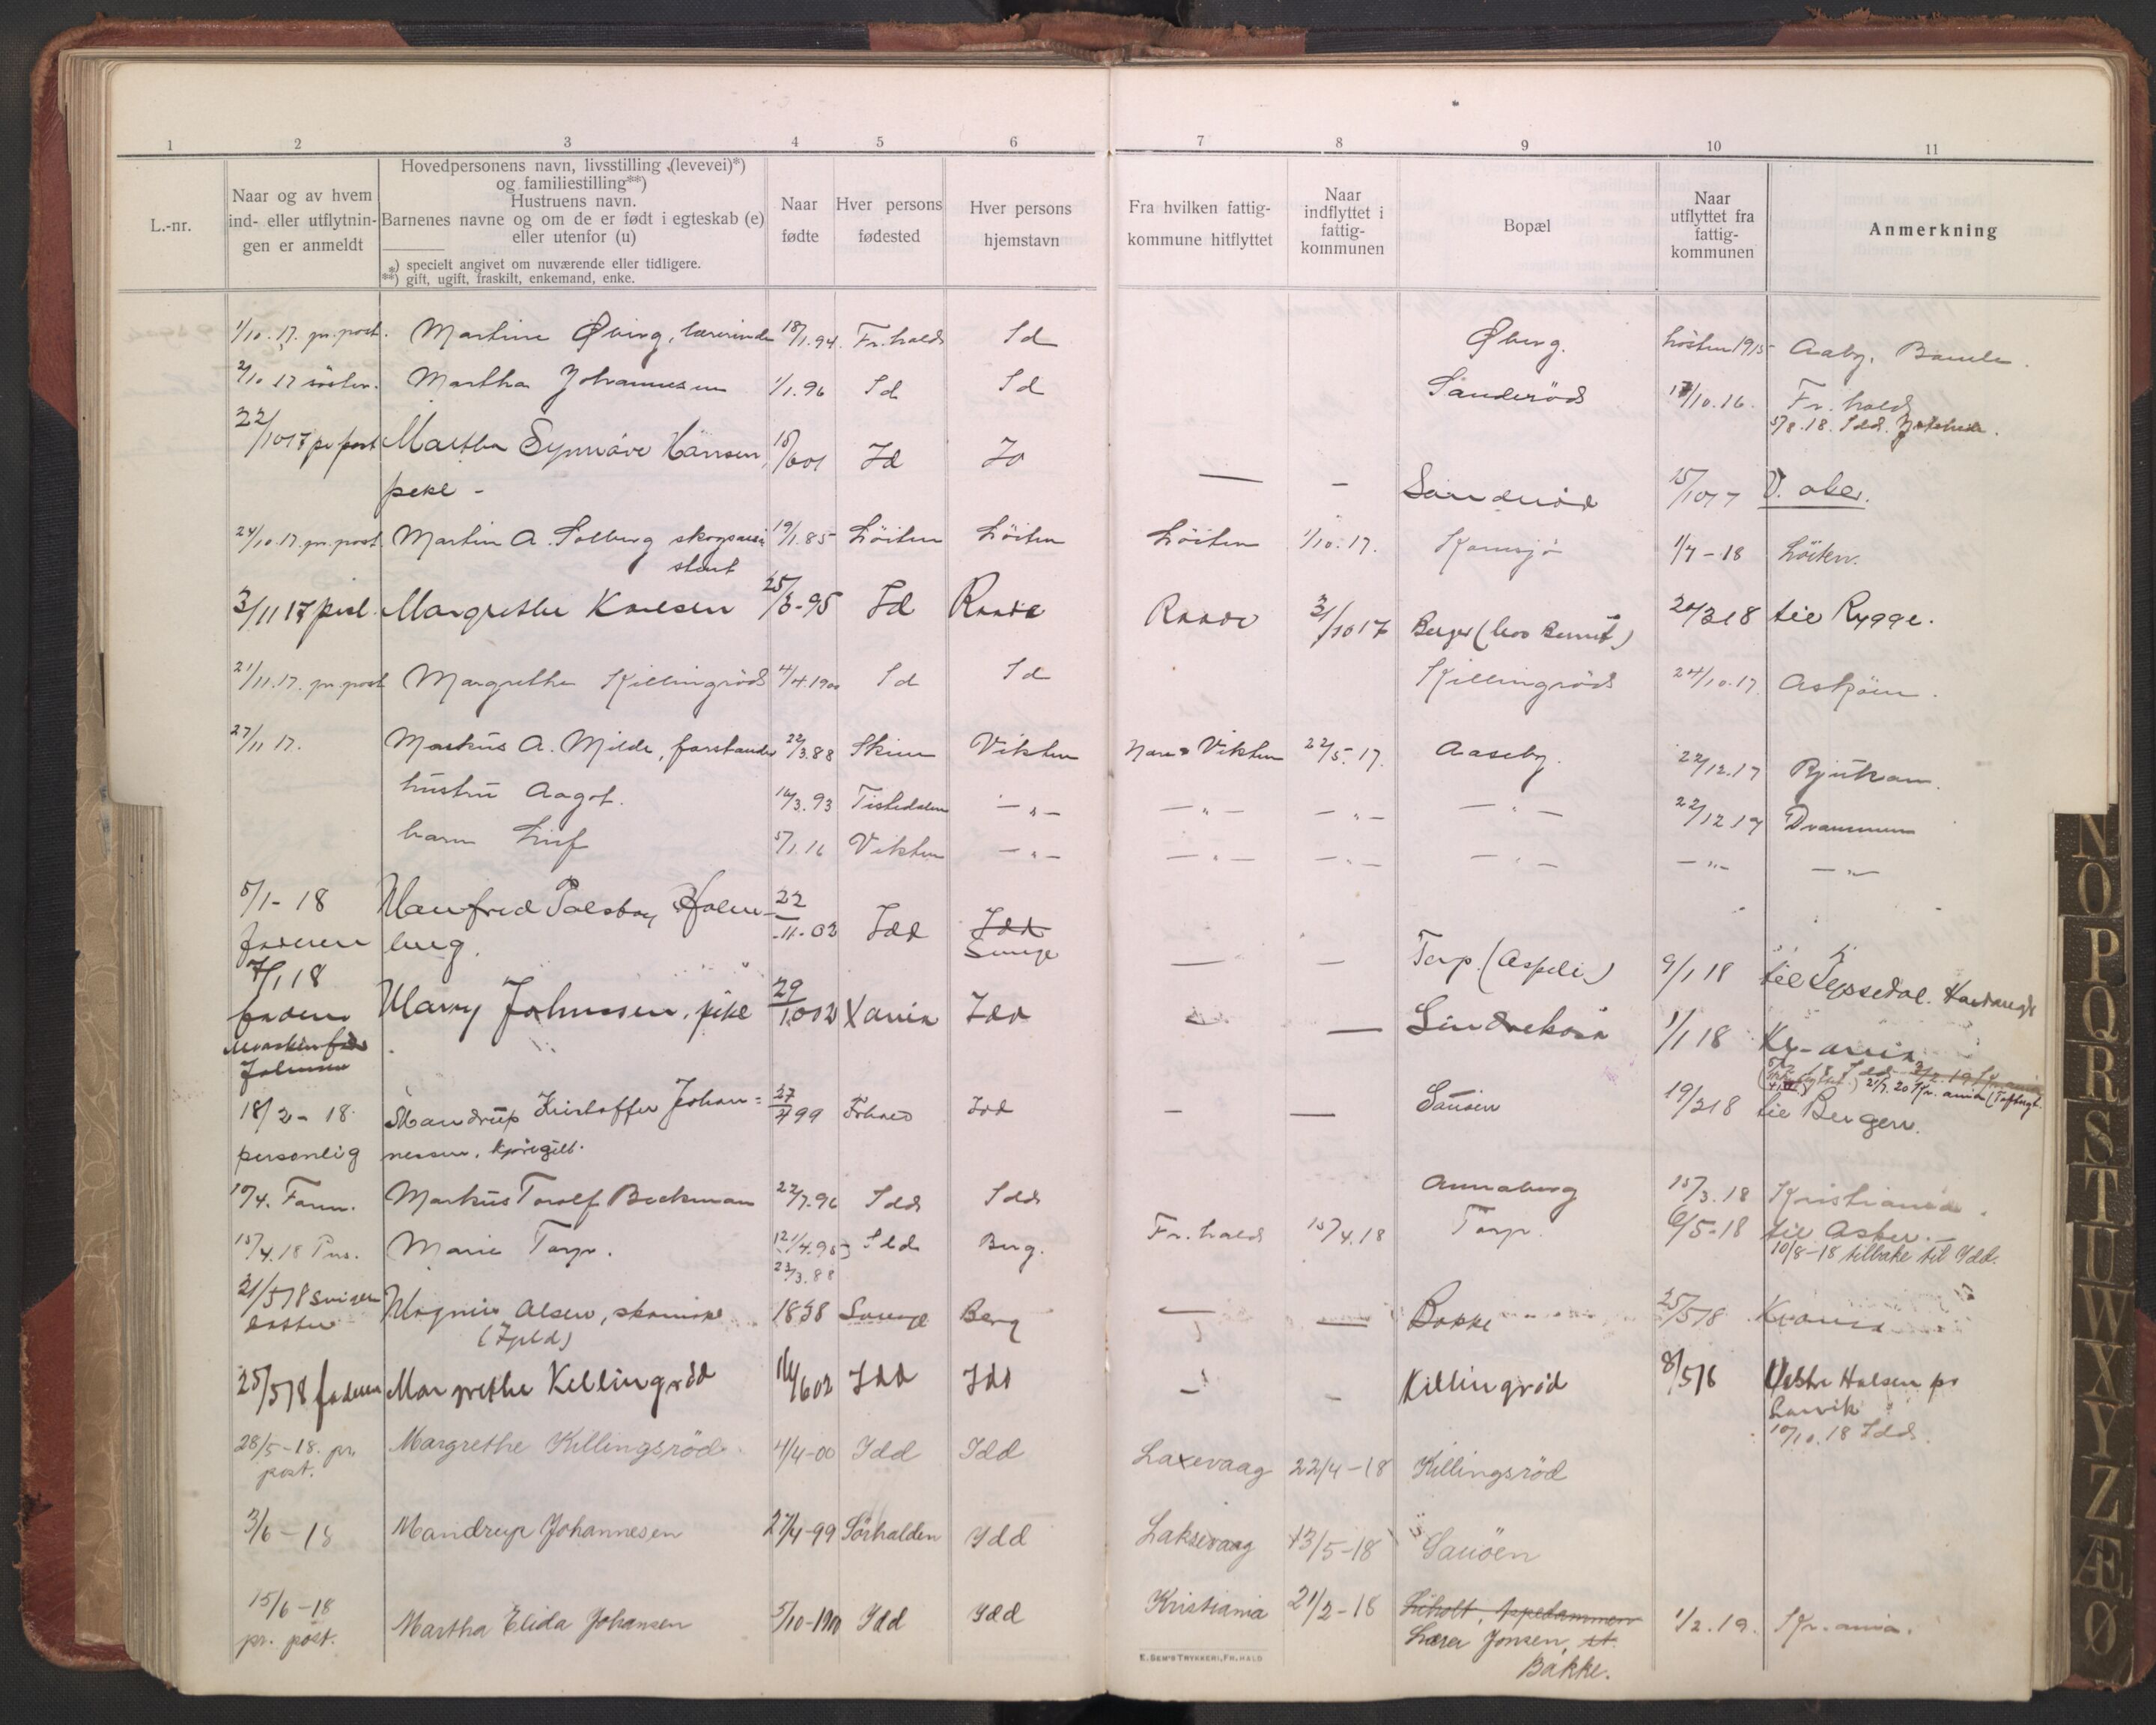 1 2 3 4 5 6 7 8 9 10 11
L.-nr.
Naar og av hvem
ind- eller utflytnin-
gen er anmeldt
Hovedpersonens navn, livsstilling (levevei)*)
og familiestilling**)
Hustruens navn.
Barnenes navne og om de er født i egteskab (e)
eller utenfor (u)
*) specielt angivet om nuværende eller tidligere.
**) gift, ugift, fraskilt, enkemand, enke.
Naar
fødte
Hver persons
fødested
Hver persons
hjemstavn
Fra hvilken fattig-
kommune hitflyttet
Naar
indflyttet i
fattig-
kommunen
Bopæl
Naar
utflyttet fra
fattig-
kommunen
Anmerkning
1/10.17. pr. post. Martine Øberg, lærerinde 18/1.94. Fr.hald Id Øberg. høsten 1915 Aaby, Bamle.
2/10 17 søster. Martha Johannesen 1/1.96 Id Id Sanderød 17/10.16. Fr. hald
5/8.18. Idd.
22/10 17 pr post Martha Synnøve Hansen, 15/6 01 Id Id — - Sanderød 15/10 17 V. aker.
pike -
24/10.17. pr. post. Martin A. Solberg skogsassi 19/1.85 Löiten Löiten Löiten 1/10.17. Kornsjø 1/7-18 Löiten.
stent
3/11 17 persl. Margrethe Karlsen 25/3-95 Id Raade Raade 31/10 17 Berger (hos Berndt) 20/3 18 til Rygge.
21/11.17. pr. post Margrethe Killingrød 4/4.1900 Id Id Killingrød 24/10.17. Askøen.
27/11 17. Markus A. Milde, forstander 22/3.88 Skien Vikten Vikten 22/5.17. Aaseby. 22/12.17 Rjukan.
hustru Aagot. 16/3.93 Tistedalen — „ — — „ — — „ — — „ — 22/12 17 Drammen
barn Leif 5/1.16 Vikten — „ — — „ — — „ — — „ — — „ — — „ —
5/1-18 Manfred Palsboy Holm- 22/11-02 Idd Idd
faderen berg. Svinge — — Torp (Aspeli) 9/1 18 til Tyssedal. Hardanger
7/1 18
faderen Marry Johnssen, pike 29/1 002 Xania Idd — Lindrekåsa 1/1 18 Kr-ania
Maskinfører
Johnssen
18/2-18. Mandrup Kristoffer Johan= 27/4 99 Frhald Idd — — Sauøen 19/2 18 til Bergen.
personlig nessen, kjøregutt.
10/4. Farm. Markus Torolf Beckman 22/7.96 Idd Idd Annaberg 15/3.18 Kristiania.
15/4.18 Prs. Marie Torp. (21/4.95) Idd Berg. Fr.hald 15/4.18 Torp. 6/5-18 til Asker.
23/3.88 10/8-18 tilbake til Idd.
21/5 18 sviger Magnus Olsen, skomaker 1838 Svinge Berg — — Bakke 25/5 18 Krania
datter
25/5 18 faderen Margrethe Killingrød 14/6 02 Idd Idd - - Killingrød 8/5 18 Vestre Halsen pr
Larvik
10/10.18 Idd.
28/5-18. pr. Margrethe Killingsröd 4/4-00 Idd Idd Laxevaag 22/4-18 Killingsröd
post.
3/6-18 Mandrup Johannesen 27/4-99 Sörhalden Idd Laksevaag 13/5-18 Sauöen
15/6-18 Martha Elida Johansen 5/10-1900 Idd Idd Kristiania 21/2-18 Liholt, Ippedammen 1/2.19. Kr.ania.
pr. post. Lærer Jonsen, st.
Bakke.
E. SEM'S TRYKKERI, FR.HALD
N
O
P
Q
R
S
T
U
W
X
Y
Z
Æ
Ø